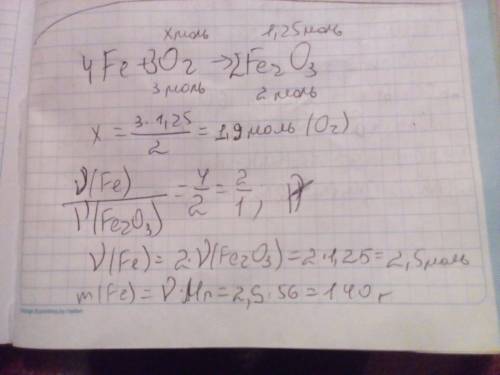 x моль 1,25 моль
4Fe + 3O2 → 2Fe2O3
3 моль 2 моль
x = 3·1,25 / 2 = 1,9 моль (O2)
ν(Fe) / ν(Fe2O3) = 4/2 = 2/1 ;
ν(Fe) = 2·ν(Fe2O3) = 2·1,25 = 2,5 моль
m(Fe) = ν·Mr = 2,5·56 = 140 г